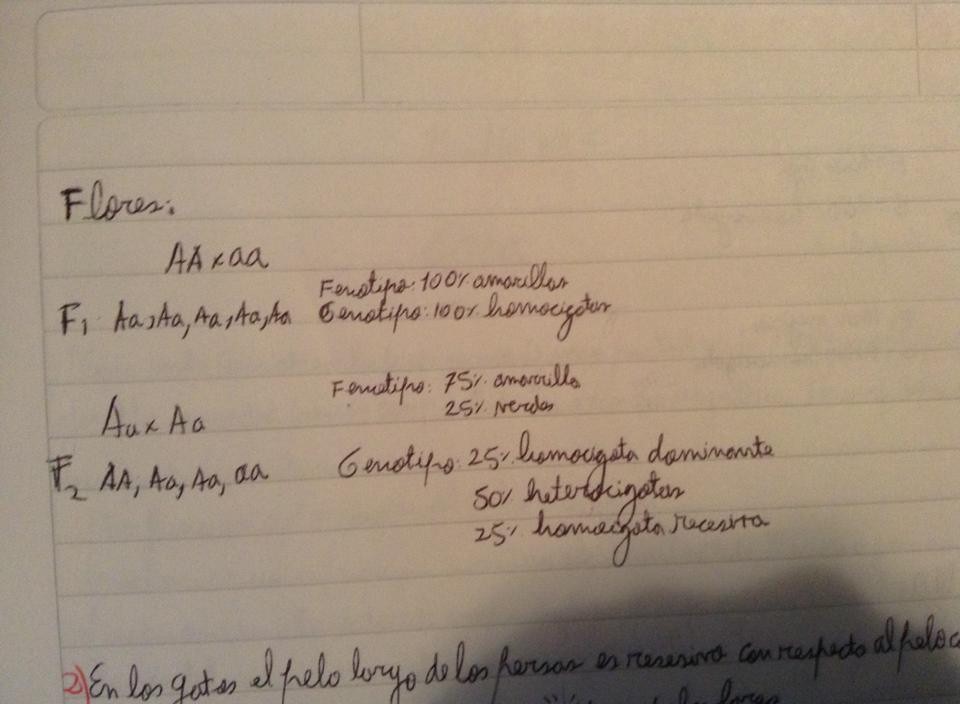 Flores:
AA x aa
Fenotipo: 100% amarillas
F1 Aa, Aa, Aa, Aa, Aa Genotipo: 100% homocigotas
Fenotipo: 75% amarilla
Aa x Aa 25% verdes
F2 AA, Aa, Aa, aa Genotipo: 25% homocigota dominante
50% heterocigotas
25% homocigota recesiva
2) En los gatos el pelo largo de los persas es resesivo con respecto al pelo c